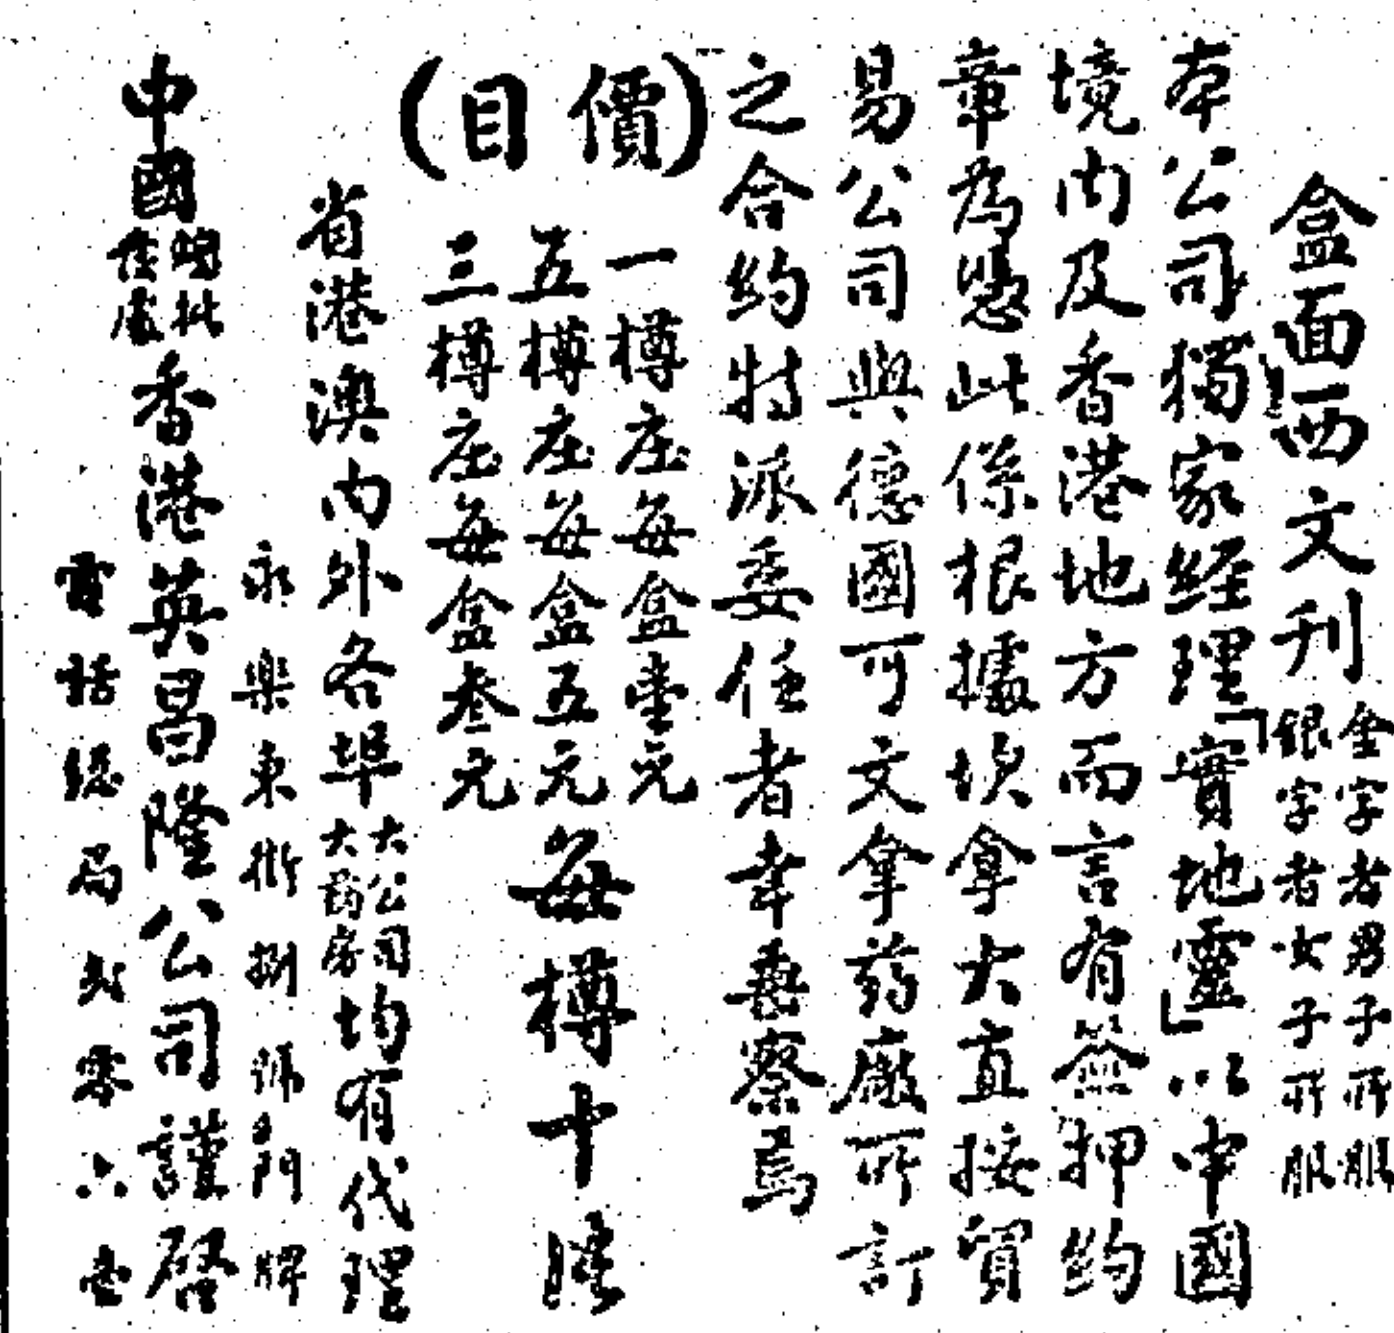 盒面西文刊金字者男子所服
銀字者女子所服
本公司獨家經理「實地靈」以中國
境內及香港地方而言有簽押約
章為憑此係根據坎拿大直接貿
易公司與德國可文拿葯廠所訂
之合約特派委任者幸垂察焉
(價目)
一樽庄每盒壹元
五樽庄每盒五元
三樽庄每盒叁元
每樽十
省港澳內外各埠大公司
大葯房均有代理
永樂東街捌號門牌
中國總批
發處香港英昌隆公司謹啓
電話總局弍零六壹